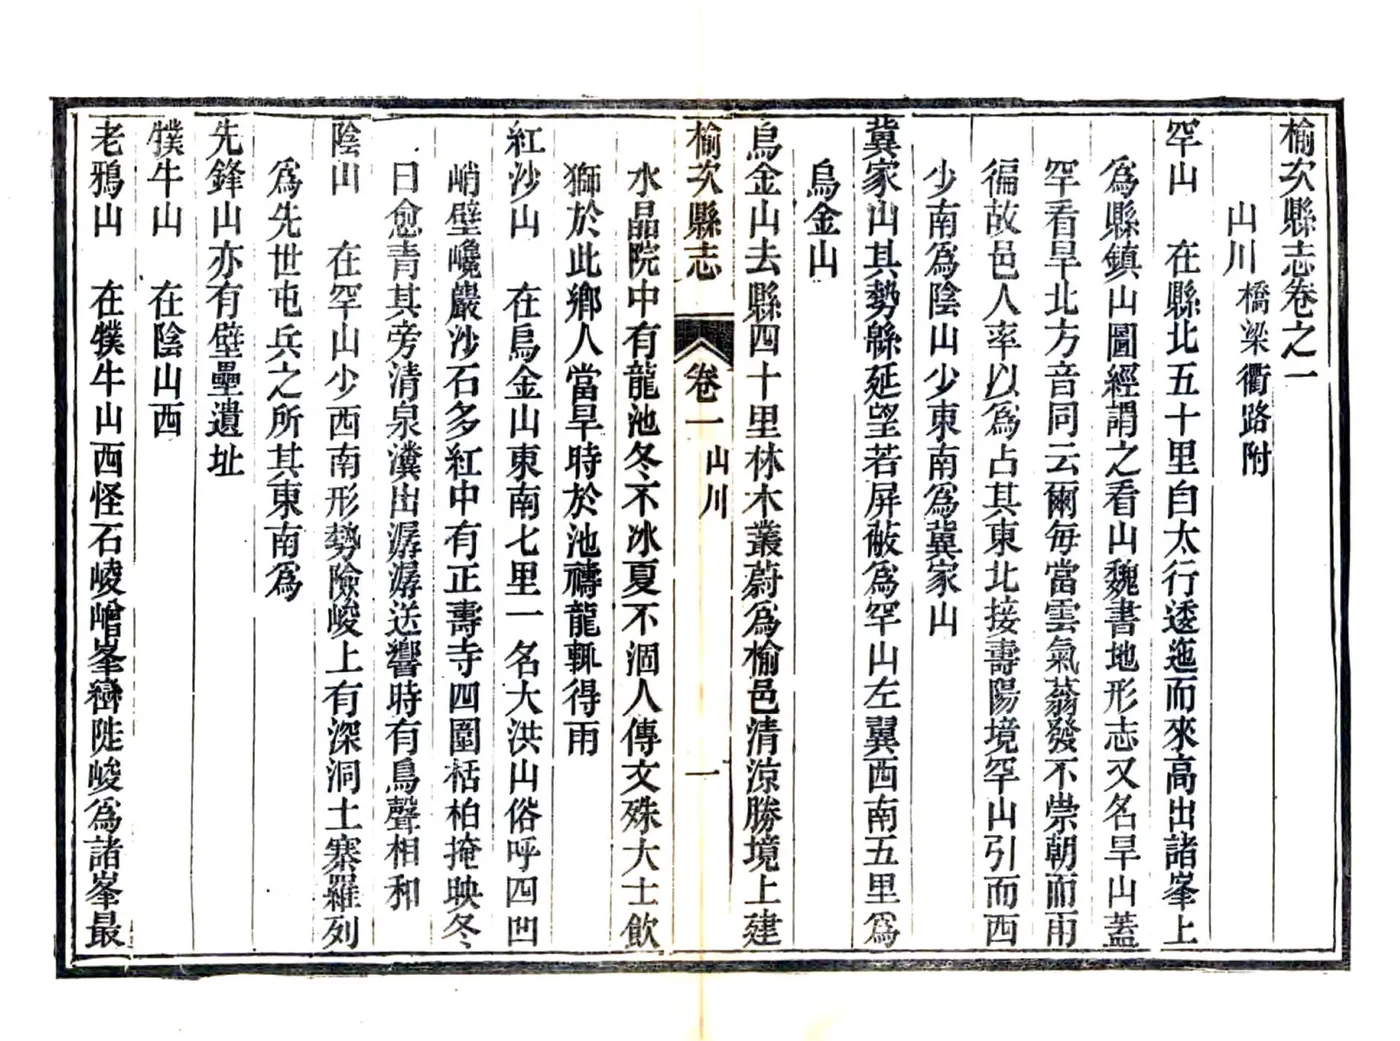 榆次縣志卷之一
山川橋梁衢路附
罕山　在縣北五十里自太行逶迤而來高出諸峯上
爲縣鎮山圖經謂之看山魏書地形志又名旱山蓋
罕看旱北方音同云爾每當雲氣蓊發不崇朝而雨
徧故邑人率以爲占其東北接壽陽境罕山引而西
少南爲陰山少東南爲冀家山
冀家山其勢緜延望若屏蔽爲罕山左翼西南五里爲
烏金山
烏金山去縣四十里林木叢蔚爲榆邑清涼勝境上建
榆次縣志　卷一　山川　一
水晶院中有龍池冬不冰夏不涸人傳文殊大士飲
獅於此鄉人當旱時於池禱龍輒得雨
紅沙山　在烏金山東南七里一名大洪山俗呼四凹
峭壁巉巖沙石多紅中有正壽寺四圍栝柏掩映冬
日愈青其旁清泉瀵出潺潺送響時有鳥聲相和
陰山　在罕山少西南形勢險峻上有深洞土寨羅列
爲先世屯兵之所其東南爲
先鋒山亦有壁壘遺址
㹒牛山　在陰山西
老鴉山　在㹒牛山西怪石崚嶒峯巒陡峻爲諸峯最